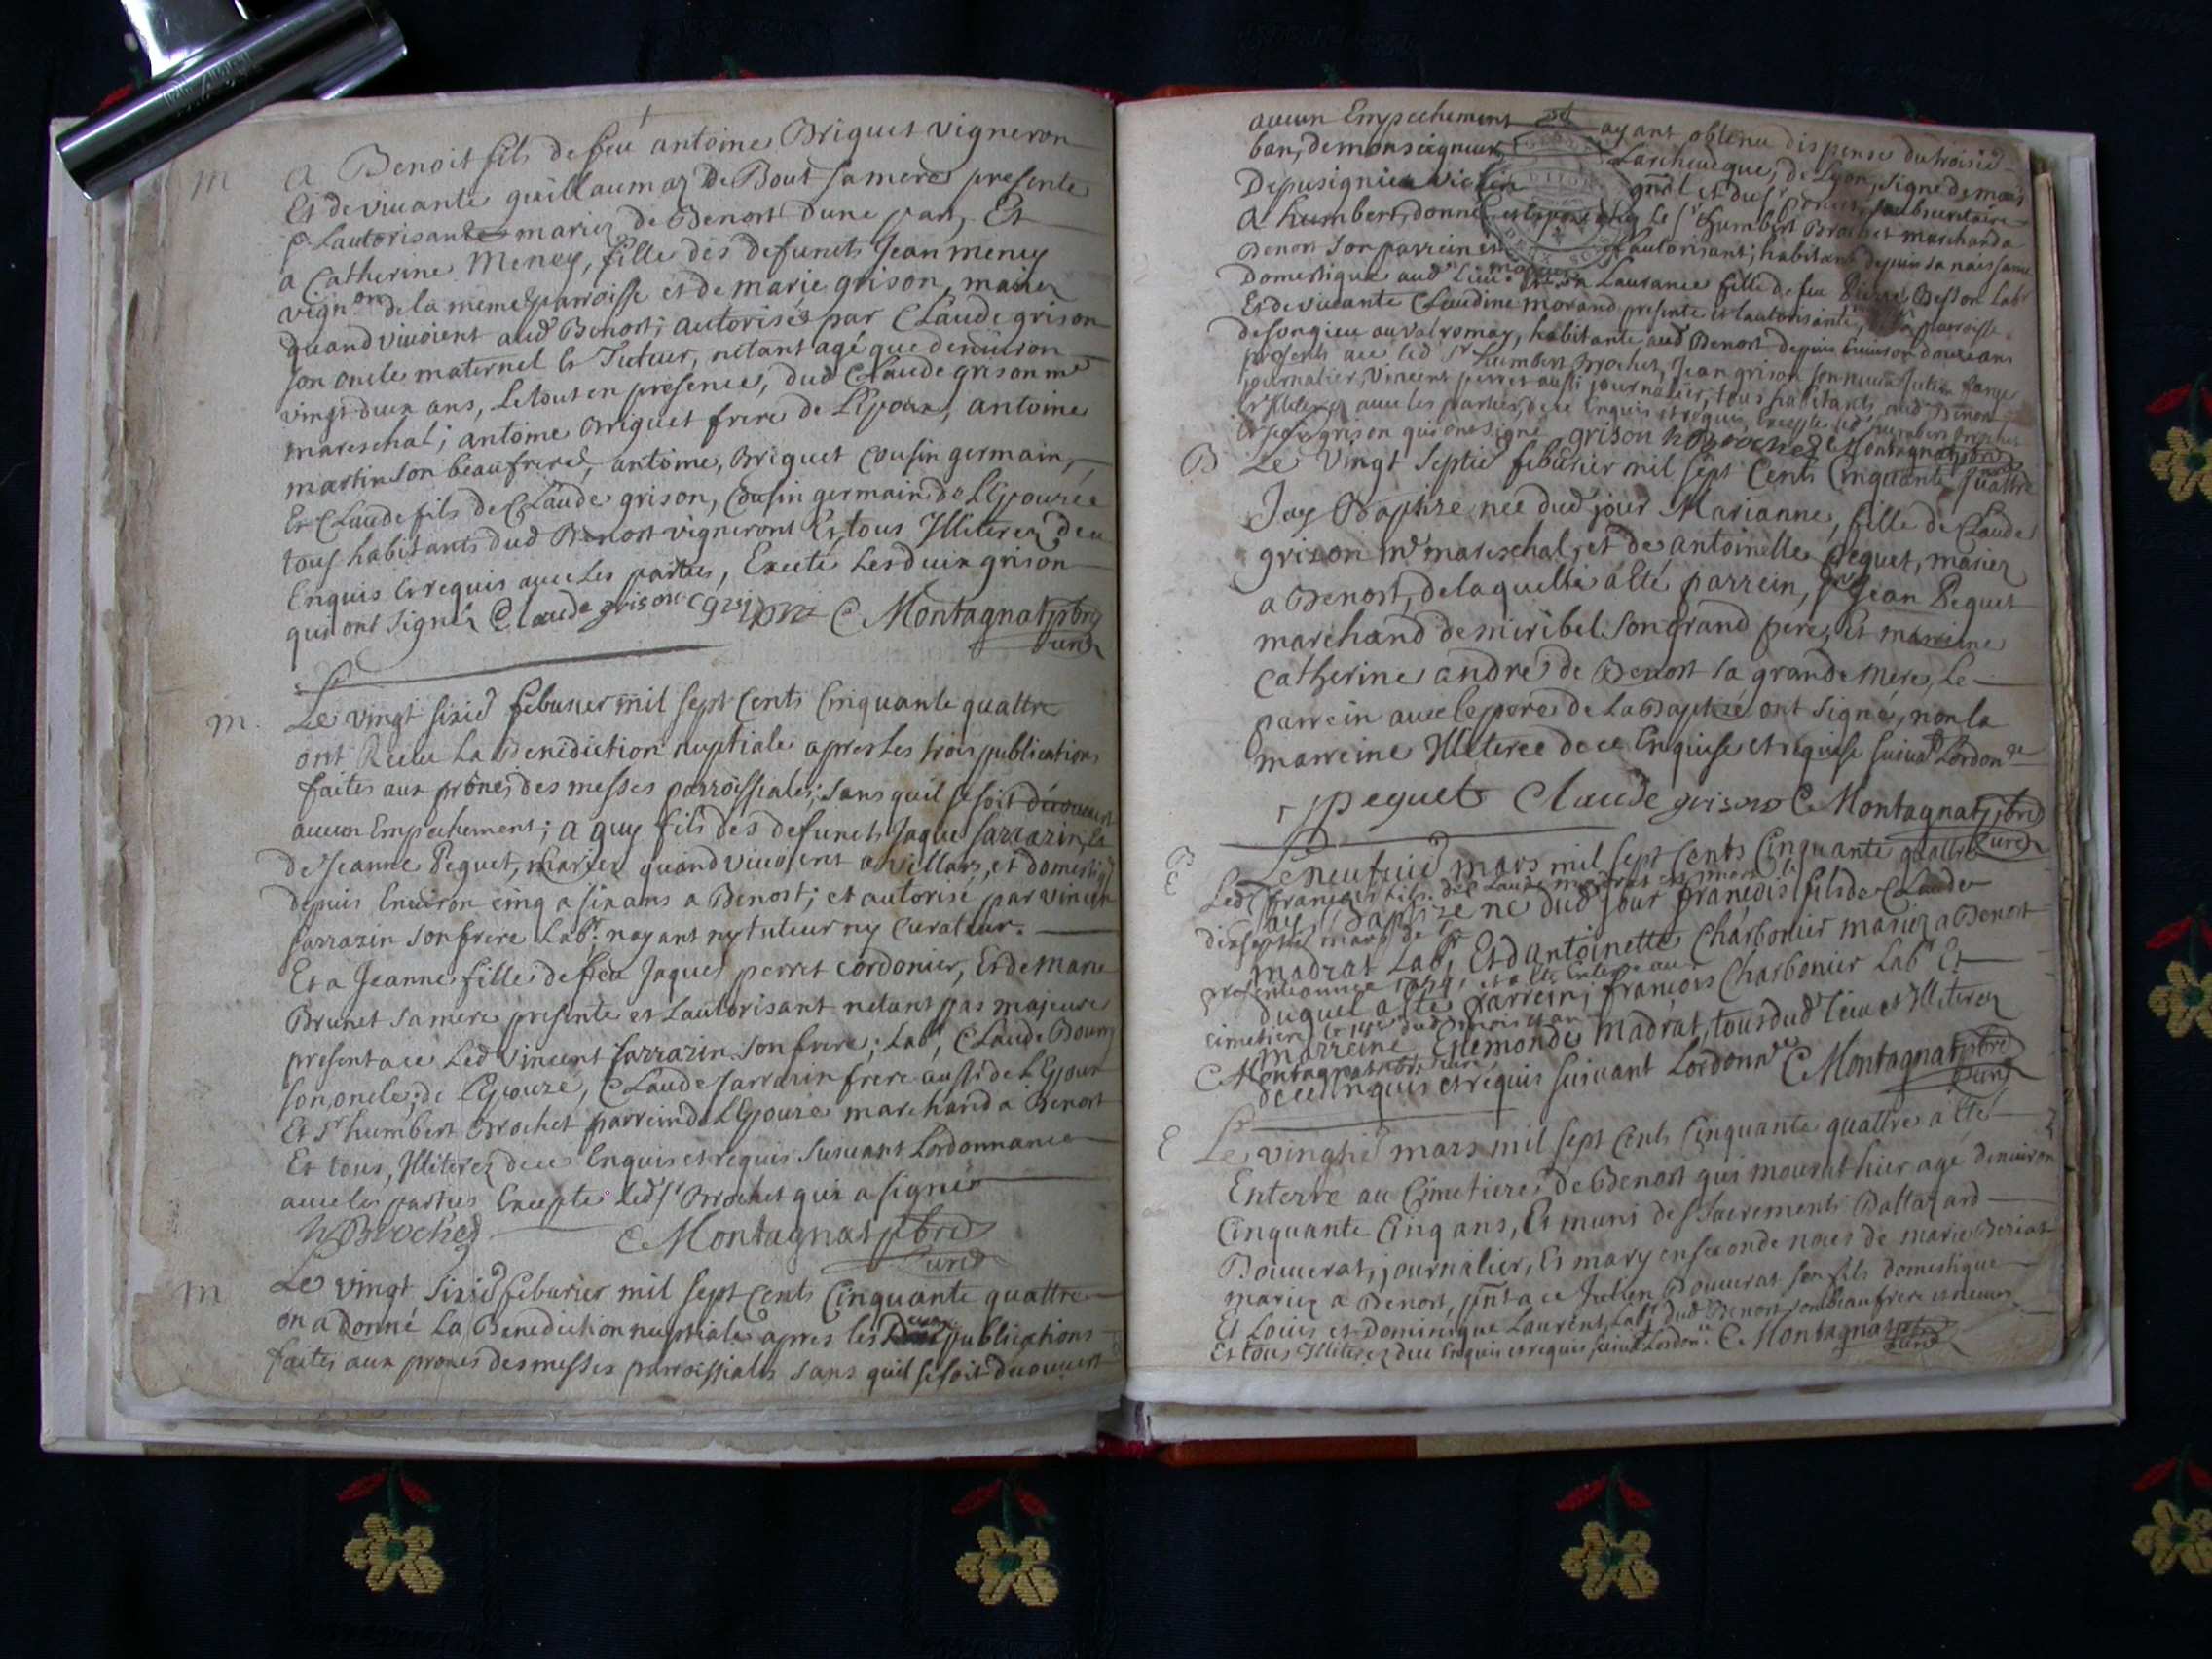 m
a Benoit fils de feu antoine Briguet vigneron
Et de vivante guillaumaz De Bout sa mere presente
Lautorisante mariez de Benost dune part, Et
a Catherine Meney, fille des defuncts Jean meney
vignon de la meme parroisse et de marie grison, mariez
quand vivoient aud Benost; autorisée par Claude grison
son oncle maternel et Tuteur, netant agé que denviron
vingt deux ans, Le tout en presence, dud Claude grison me
mareschal; antoine Briguet frere de LEpoux, antoine
martin son beaufrere, antoine, Briguet Cousin germain,
Et Claude fils de Claude grison, Cousin germain de LEpouzée
tous habitants dud Benost vignerons Et tous Illiterez de ce
Enquis et requis avec les parties, Excepté Les deux grison
qui ont signé Claude grison C grison C Montagnat pbre
curé
m.
Le vingt sixie feburier mil sept Cents Cinquante quattre
ont Receu La Benediction nuptiale apres Les trois publications
faites aux prônes des messes parroissiales; sans quil se soit découvert
aucun Empechement; a guy fils des defuncts Jaque sarrazin, Et
de Jeanne Peguet, mariez quand vivoient a villars, et domestiq
depuis Environ cinq a six ans a Benost; et autorisé par vincent
sarrazin son frere Labr. nayant ny tuteur ny Curateur.
Et a Jeanne fille de feu Jaques perret cordonier, Et de Marie
Brunet sa mere presente et Lautorisant netant pas majeure
present a ce Led vincent sarrazin son frere; Labr, Claude Bourg
son oncle; de LEpouzé, Claude sarrazin frere aussi de LEpoux
Et Sr humbert Brochet parrein de LEpouzé marchand a Benost
Et tous, Illiterez de ce Enquis et requis suivant Lordonnance
avec les parties Excepté Led Sr Brochet qui a signé
h Brochet C Montagnat pbre
curé
m
Le vingt sixie feburier mil sept Cents Cinquante quattre
on a donné La Benediction nuptiale apres les deux publications
faites aux prones des messes parroissiales sans quil se soit decouvert
aucun Empechement et ayant obtenu dispense du troisie
ban, de monseigneur Larcheveque, de Lyon, signé de mais
Depusignieu vicaire gnal et du Sr
a humbert, donné Le Sr humbert Brochet marchand a
Benost son parrein et Lautorisant; habitant depuis sa naissance
Domestique aud Lieu. Laurance fille de feu Pierre Besson Labr
Et de vivante Claudine morand presente et Lautorisante, parroisse
de songieu au valromay, habitante aud Benost depuis Environ douze ans
presents a ce led Sr humbert Brochet, Jean grison son neveu
journalier, vincent perret aussi journalier, tous habitants aud Benost
Illiterez avec les parties, de ce Enquis et requis, Excepté led Sr humbert Brochet
grison qui ont signé grison h Brochet C Montagnat pbre
B
Le vingt septie feburier mil sept Cents Cinquante quattre
Jay Baptizé née dud jour Marianne, fille de Claude
grison me mareschal, et de antoinette Peguet, mariez
a Benost, de laquelle a été parrein, Sr Jean Peguet
marchand de miribel son grand pere, Et marreine
Catherine andré de Benost sa grande mere, Le
parrein avec le pere de La Baptizé ont signé, non la
marreine Illiterée de ce Enquise et requise suivt Lordonce
J peguet Claude grison C Montagnat pbre
curé
B
E
Le neuvie mars mil sept Cents Cinquante quattre
Jay Baptizé né dud jour francois fils de Claude
madrat Labr, Et dantoinette Charbonier mariez a Benost
duquel a été parrein; francois Charbonier Labr Et
marreine Enemonde Madrat, tous dud Lieu et Illiterez
de ce Enquis et requis suivant Lordonnce C Montagnat pbre
curé
Led francois fils de Claude madrat est mort le
dixseptie mars de la
presente année 1754, et a été Enterré au
cimetiere le 18e dud mois et an
C Montagnat pbre curé
E
Le vingtie mars mil sept Cents Cinquante quattre a été
Enterré au Cimetiere de Benost qui mourut hier agé denviron
Cinquante Cinq ans, Et muni des sacrements Baltazard
Bouverat, journalier, Et mary en seconde noces de marie Beriat
mariez a Benost, pnt a ce Julien Bouverat son fils domestique
Et Louis et Dominique Laurent, Labr, dud Benost son beaufrere et neveu
Et tous Illiterez de ce Enquis et requis suivt Lordonce C. Montagnat pbre
curé